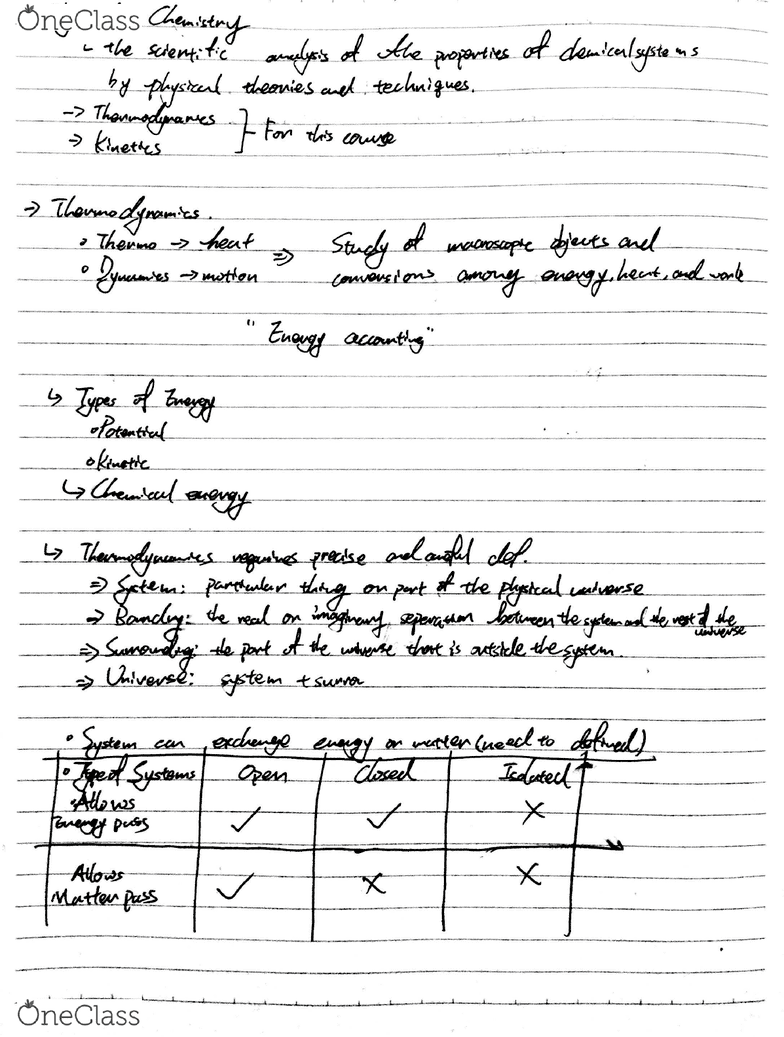 OneClass Chemistry
↳ the scientific analysis of the properties of chemical systems
by physical theories and techniques.
→ Thermodynamics
→ Kinetics } For this course
→ Thermodynamics.
• Thermo → heat ⇒ Study of macroscopic objects and
• Dynamics → motion conversions among energy, heat, and work
"Energy accounting"
↳ Types of Energy
• Potential
• Kinetic
↳ Chemical energy
↳ Thermodynamics requires precise and careful def.
⇒ System: particular thing or part of the physical universe
⇒ Boundry: the real or imaginary separation between the system and the rest of the
universe
⇒ Surrounding: the part of the universe that is outside the system.
⇒ Universe: system + surro
• System can exchange energy or matter (need to defined)
• Type of Systems Open Closed Isolated
• Allows
Energy pass ✓ ✓ ✗
Allows
Matter pass ✓ ✗ ✗
OneClass